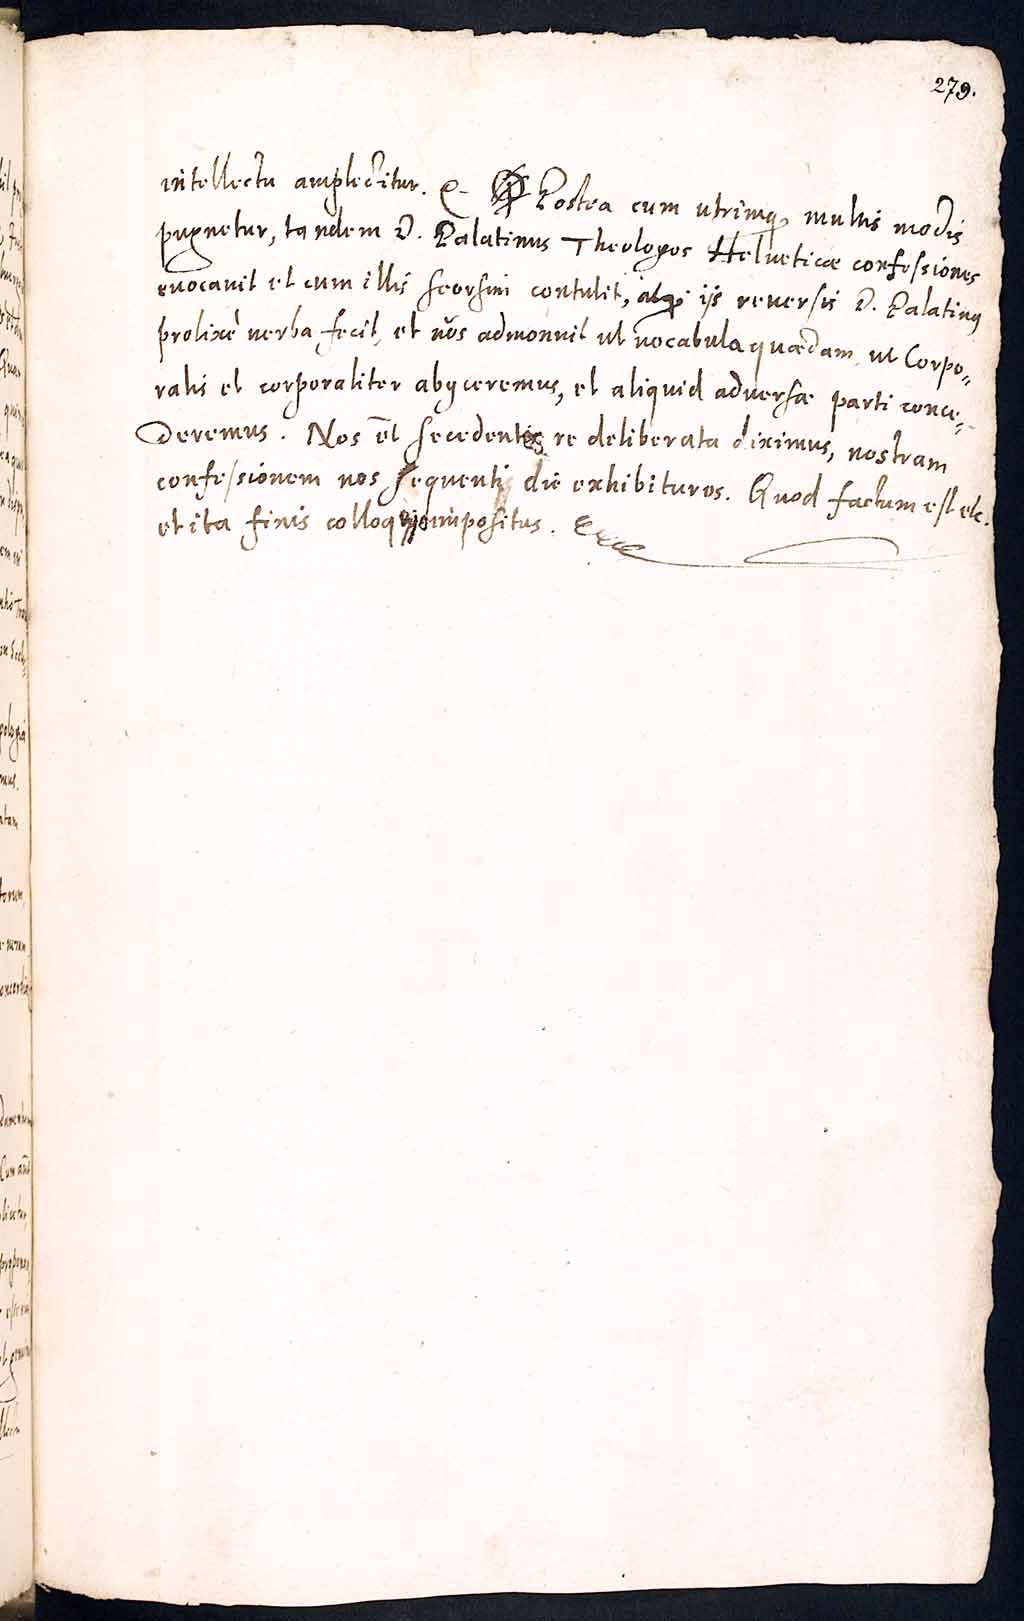 279.
intellectu amplectitur. &. Postea cum utrimq multis modis
pugnetur, tandem D. Palatinus Theologos Helveticæ confessiones
euocauit et cum illis seorsim contulit, atq ijs reuersis D. Palatinus
prolixè uerba fecit, et nos admonuit ut uocabula quædam, ut Corpo„
ralis et corporaliter abyceremus, et aliquid aduersæ parti conce„
deremus. Nos et secedentes re deliberata diximus, nostram
confessionem nos sequenti die exhibituros. Quod factum est etc.
et ita finis colloquio impositus.